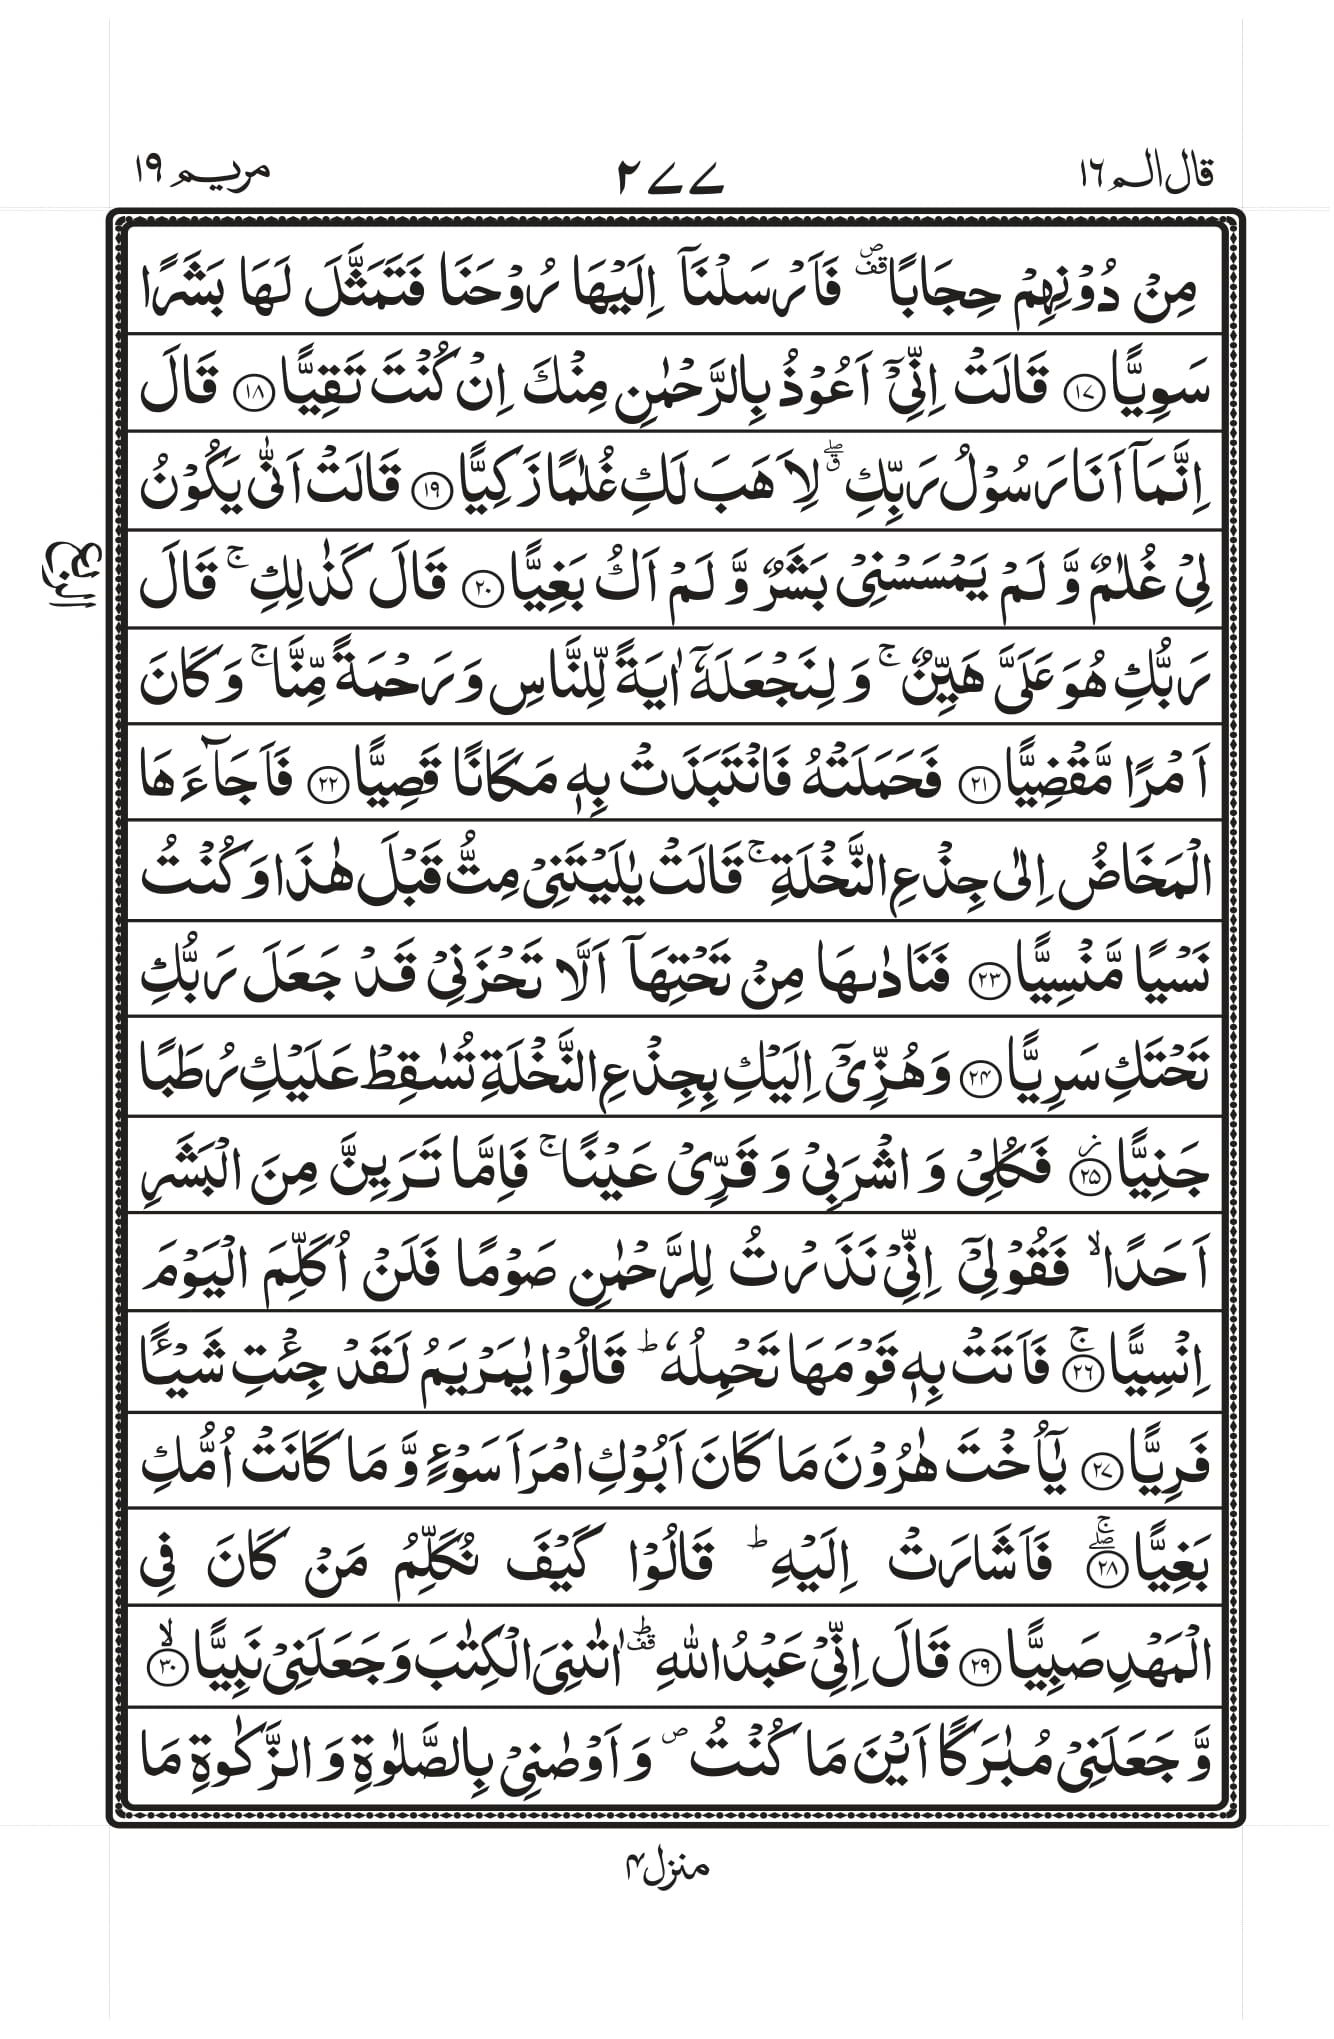 قال الم ١٦
٢٧٧
مريم ١٩
مِنْ دُوْنِهِمْ حِجَابًا ۪ۖ فَاَرْسَلْنَاۤ اِلَيْهَا رُوْحَنَا فَتَمَثَّلَ لَهَا بَشَرًا
سَوِيًّا ﴿١٧﴾ قَالَتْ اِنِّيْۤ اَعُوْذُ بِالرَّحْمٰنِ مِنْكَ اِنْ كُنْتَ تَقِيًّا ﴿١٨﴾ قَالَ
اِنَّمَاۤ اَنَا رَسُوْلُ رَبِّكِ ۖۗ لِاَهَبَ لَكِ غُلٰمًا زَكِيًّا ﴿١٩﴾ قَالَتْ اَنّٰى يَكُوْنُ
لِيْ غُلٰمٌ وَّ لَمْ يَمْسَسْنِيْ بَشَرٌ وَّ لَمْ اَكُ بَغِيًّا ﴿٢٠﴾ قَالَ كَذٰلِكِ ۚ قَالَ
النصف
رَبُّكِ هُوَ عَلَيَّ هَيِّنٌ ۚ وَ لِنَجْعَلَهٗۤ اٰيَةً لِّلنَّاسِ وَ رَحْمَةً مِّنَّا ۚ وَ كَانَ
اَمْرًا مَّقْضِيًّا ﴿٢١﴾ فَحَمَلَتْهُ فَانْتَبَذَتْ بِهٖ مَكَانًا قَصِيًّا ﴿٢٢﴾ فَاَجَآءَهَا
الْمَخَاضُ اِلٰى جِذْعِ النَّخْلَةِ ۚ قَالَتْ يٰلَيْتَنِيْ مِتُّ قَبْلَ هٰذَا وَ كُنْتُ
نَسْيًا مَّنْسِيًّا ﴿٢٣﴾ فَنَادٰىهَا مِنْ تَحْتِهَاۤ اَلَّا تَحْزَنِيْ قَدْ جَعَلَ رَبُّكِ
تَحْتَكِ سَرِيًّا ﴿٢٤﴾ وَ هُزِّيْۤ اِلَيْكِ بِجِذْعِ النَّخْلَةِ تُسٰقِطْ عَلَيْكِ رُطَبًا
جَنِيًّا ﴿٢٥﴾ؗ فَكُلِيْ وَ اشْرَبِيْ وَ قَرِّيْ عَيْنًا ۚ فَاِمَّا تَرَيِنَّ مِنَ الْبَشَرِ
اَحَدًا ۙ فَقُوْلِيْۤ اِنِّيْ نَذَرْتُ لِلرَّحْمٰنِ صَوْمًا فَلَنْ اُكَلِّمَ الْيَوْمَ
اِنْسِيًّا ﴿٢٦﴾ۚ فَاَتَتْ بِهٖ قَوْمَهَا تَحْمِلُهٗ ؕ قَالُوْا يٰمَرْيَمُ لَقَدْ جِئْتِ شَيْـًٔا
فَرِيًّا ﴿٢٧﴾ يٰۤاُخْتَ هٰرُوْنَ مَا كَانَ اَبُوْكِ امْرَاَ سَوْءٍ وَّ مَا كَانَتْ اُمُّكِ
بَغِيًّا ﴿٢٨﴾ۖۚ فَاَشَارَتْ اِلَيْهِ ؕ قَالُوْا كَيْفَ نُكَلِّمُ مَنْ كَانَ فِي
الْمَهْدِ صَبِيًّا ﴿٢٩﴾ قَالَ اِنِّيْ عَبْدُ اللّٰهِ ؕ۫ اٰتٰىنِيَ الْكِتٰبَ وَ جَعَلَنِيْ نَبِيًّا ﴿٣٠﴾ۙ
وَّ جَعَلَنِيْ مُبٰرَكًا اَيْنَ مَا كُنْتُ ۪ وَ اَوْصٰنِيْ بِالصَّلٰوةِ وَ الزَّكٰوةِ مَا
منزل ٤